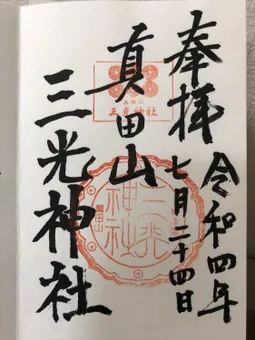 奉拝
令和四年
七月二十四日
真田山
三光神社
真田山
三光神社
三光
神社